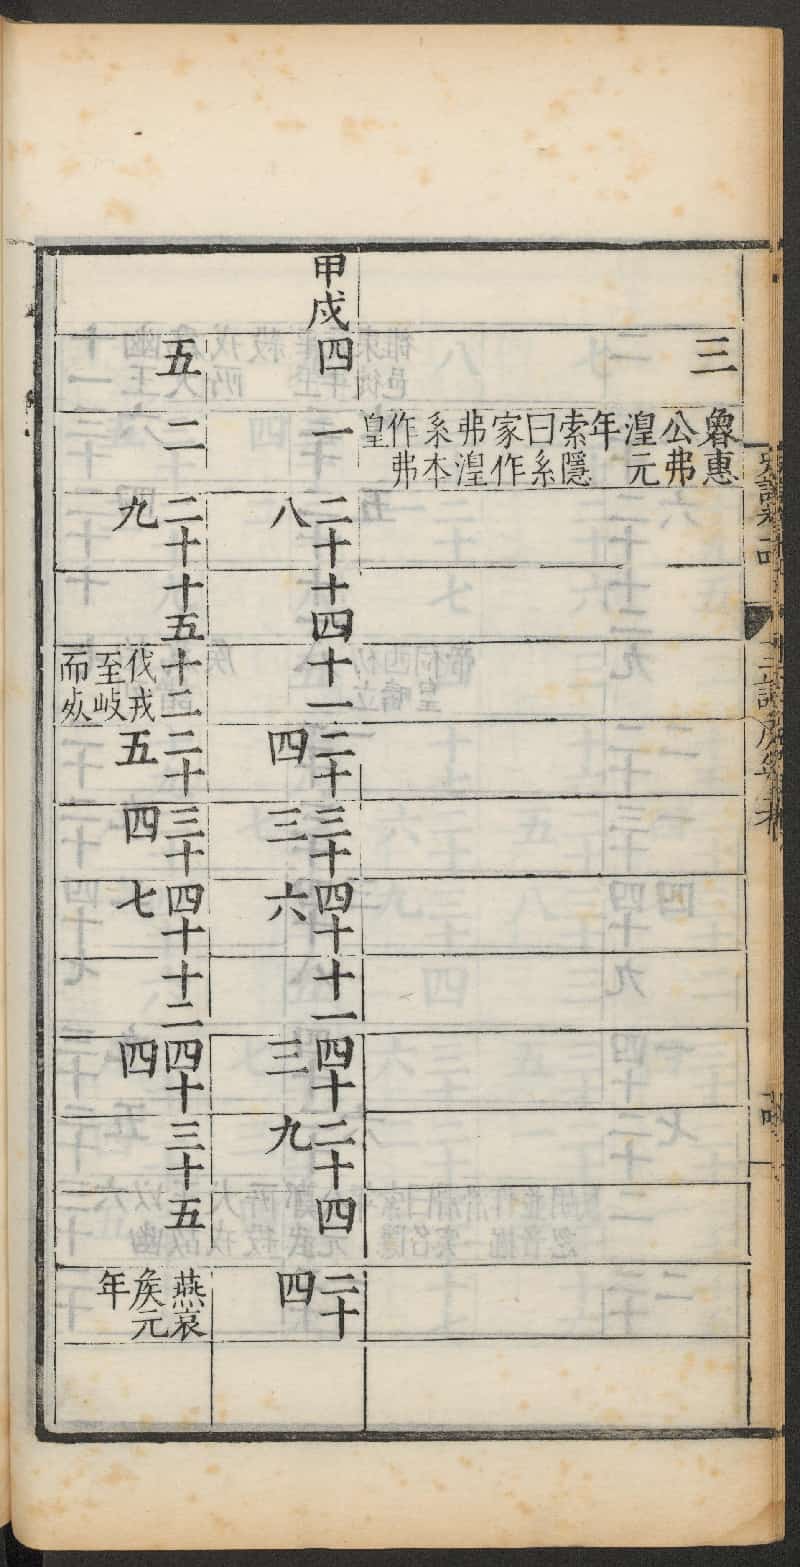 三
魯惠
公弗
湟元
年
索隱
曰系
家作
弗湟
系本
作弗
皇
甲戌
四
一
二十
八
十四
十一
二十
四
三十
三
四十
六
十一
四十
三
二十
九
四
二十
四
五
二
二十
九
十五
十二
伐戎
至岐
而死
二十
五
三十
四
四十
七
十二
四十
四
三十
五
燕哀
矦元
年